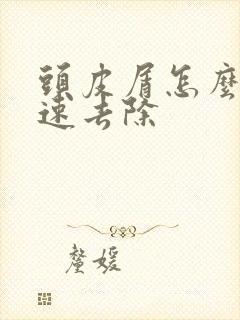 頭皮屑怎麼
速去除
鳌媛